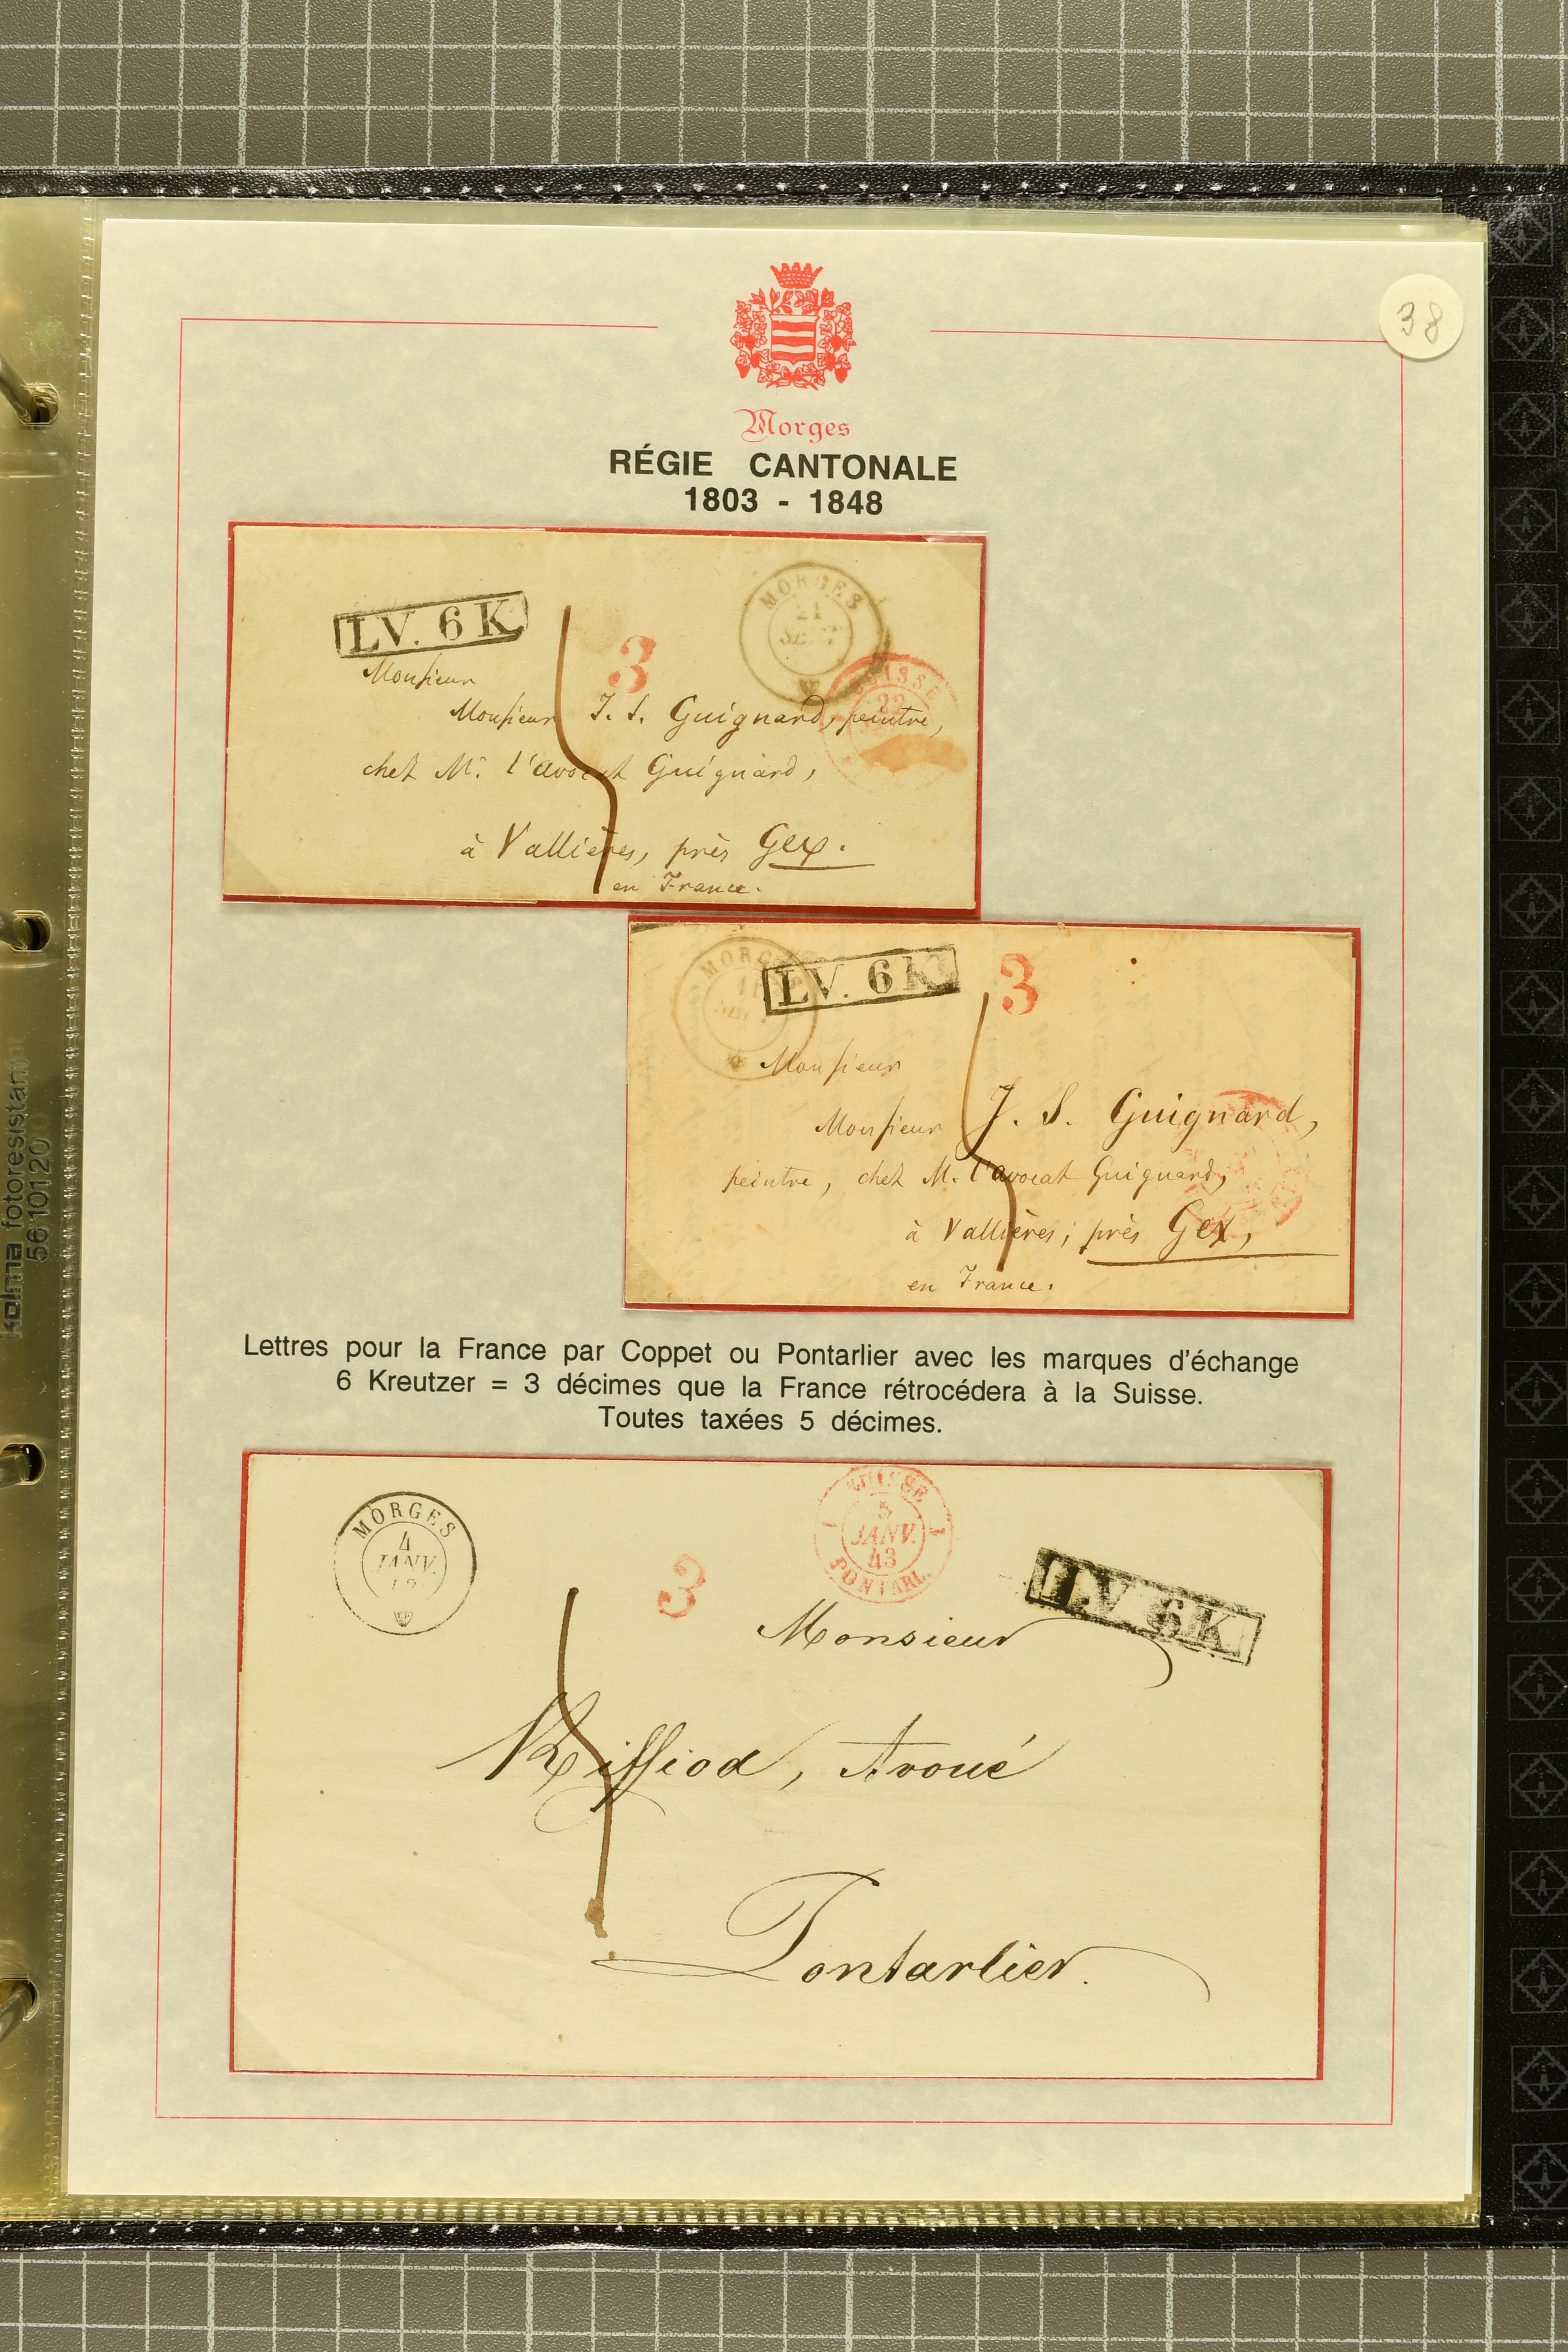 38
Morges
RÉGIE CANTONALE
1803 - 1848
LV. 6 K
3
MORGES
21
SUISSE
22
Monsieur
Monsieur J. S. Guignard, peintre,
chez Mr. l'avocat Guignard,
à Vallières, près Gex.
en France.
MORGES
LV. 6 K
3
Monsieur
Monsieur J. S. Guignard,
peintre, chez M. l'avocat Guignard,
à Vallières, près Gex,
en France.
Lettres pour la France par Coppet ou Pontarlier avec les marques d'échange
6 Kreutzer = 3 décimes que la France rétrocédera à la Suisse.
Toutes taxées 5 décimes.
MORGES
4
JANV.
3
SUISSE
5
JANV.
43
PONTARL.
LV. 6 K
Monsieur
Riffiod, Avoué
Pontarlier.
kolma fotoresistant
56 101 20